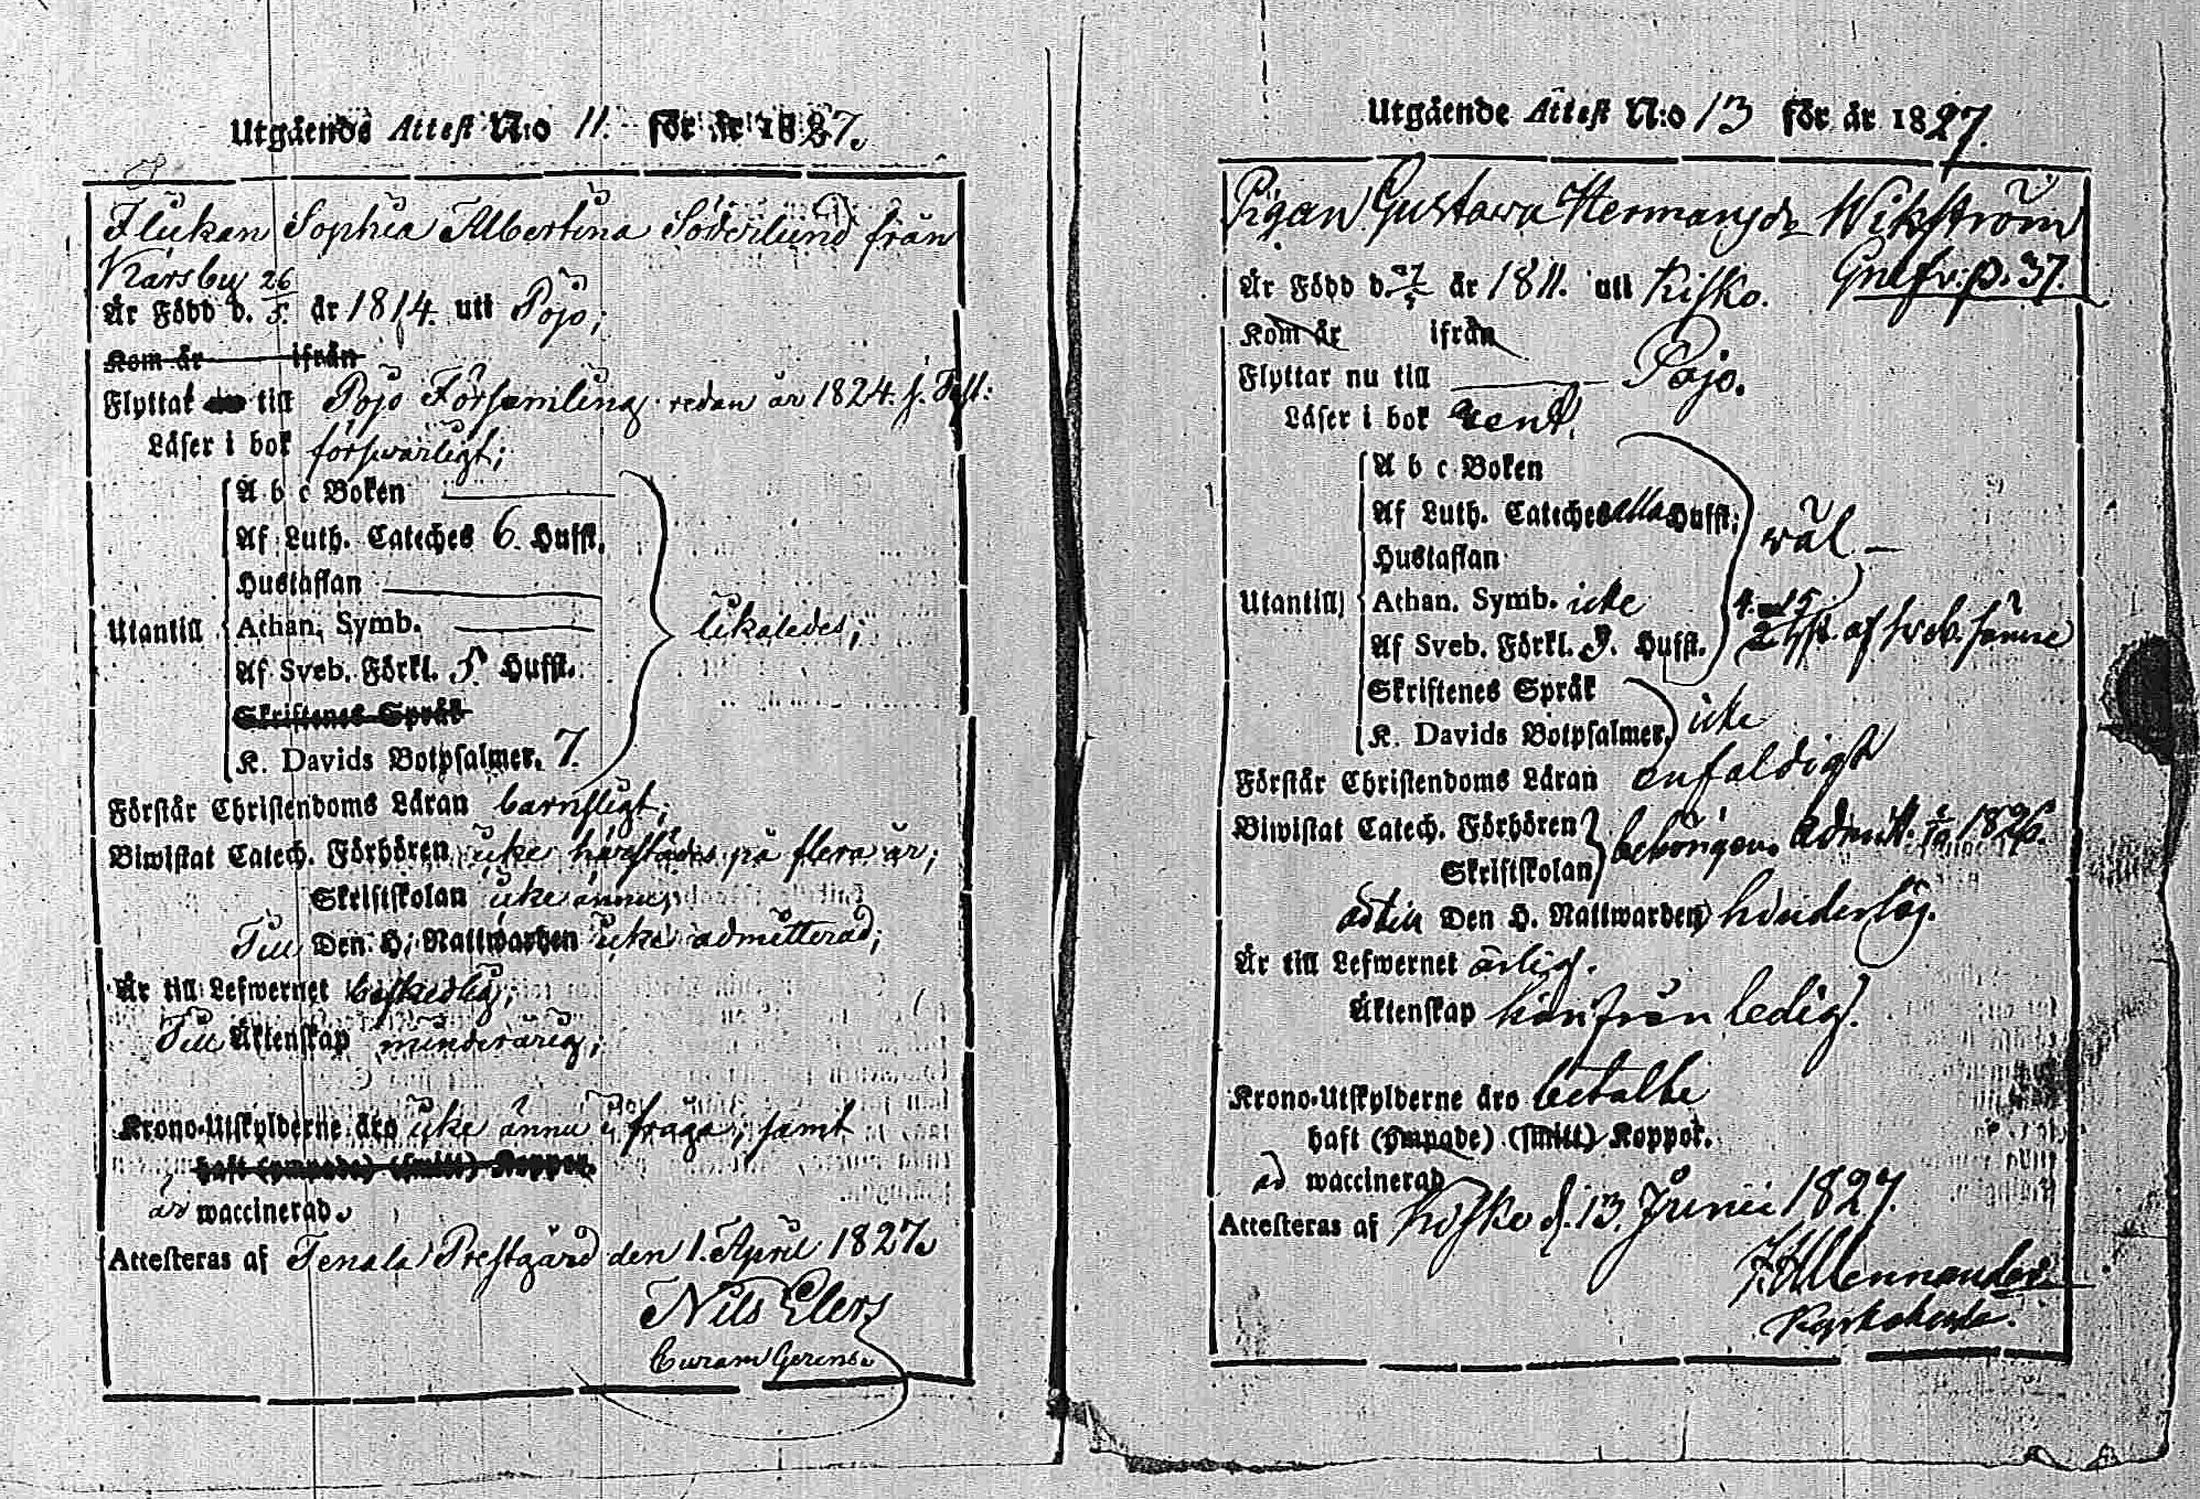 Utgående Attest N:o 11. för år 1827.
Flickan Sophia Albertina Söderlund från
Karsby
Är Född d. 26/5. år 1814. uti Pojo;
Kom år ifrån
Flyttat till Pojo Församling redan år 1824.
Läser i bok försvarligt;
A b c Boken
Af Luth. Cateches 6. Hufst.
Hustaflan
Utantill Athan. Symb. likaledes;
Af Sveb. Förkl. 5. Hufst.
Skriftenes Språk
K. Davids Botpsalmer. 7.
Förstår Christendoms Läran barnsligt;
Biwistat Catech. Förhören icke härstädes på flera år;
Skriftskolan icke ännu;
Till Den H. Nattwarden icke admitterad;
Är till Lefwernet beskedlig;
Till Äktenskap minderårig;
Krono-Utskylderne äro icke ännu i fråga; samt
haft (ympade) (smitt) Koppor.
är waccinerad.
Attesteras af Tenala Prestgård den 1. April 1827.
Nils Elers
Curam Gerens.
Utgående Attest N:o 13 för år 1827.
Pigan Gustava Hermansdr Wikström
Är Född d. år 1811. uti Kisko. p. 37.
Kom år ifrån
Flyttar nu till Pojo.
Läser i bok rent.
A b c Boken
Af Luth. Cateches alla Hufst; wäl
Hustaflan
Utantill Athan. Symb. icke
Af Sveb. Förkl. Hufst. af Sveb.
Skriftenes Språk
K. Davids Botpsalmer. icke
Förstår Christendoms Läran enfaldigt
Biwistat Catech. Förhören behörigen. Admitt. 1826.
Skriftskolan
Den H. Nattwarden hinderlös.
Är till Lefwernet ärlig.
Äktenskap härifrån ledig.
Krono-Utskylderne äro betalte
haft (ympade) (smitt) Koppor.
waccinerad
Attesteras af Kisko d. 13. Junii 1827.
Kyrkoherde.